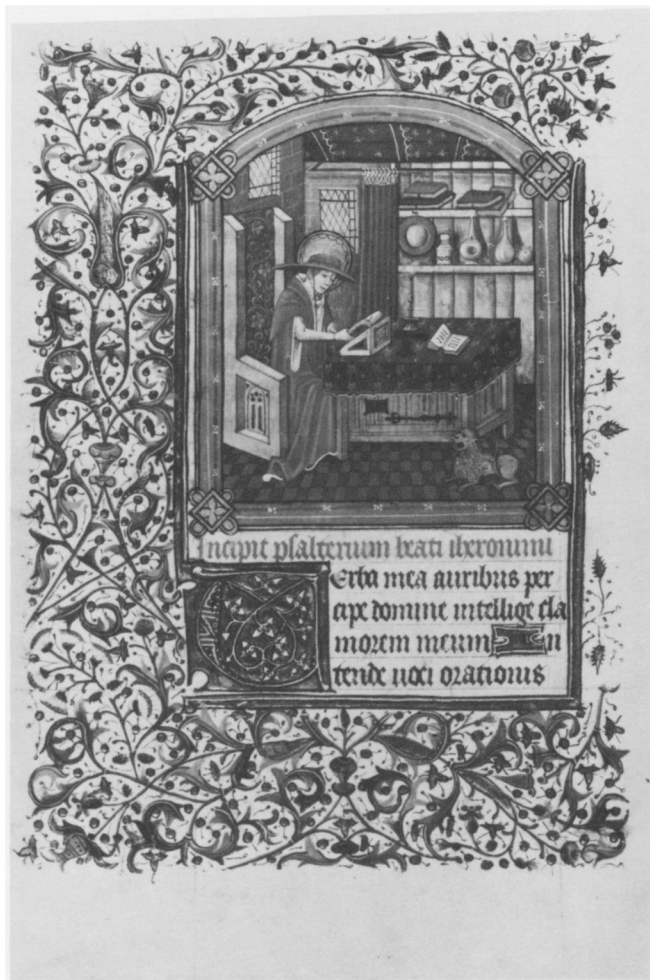 Incipit psalterium beati iheronimi
Verba mea auribus per
cipe domine intellige cla
morem meum In
tende voci orationis